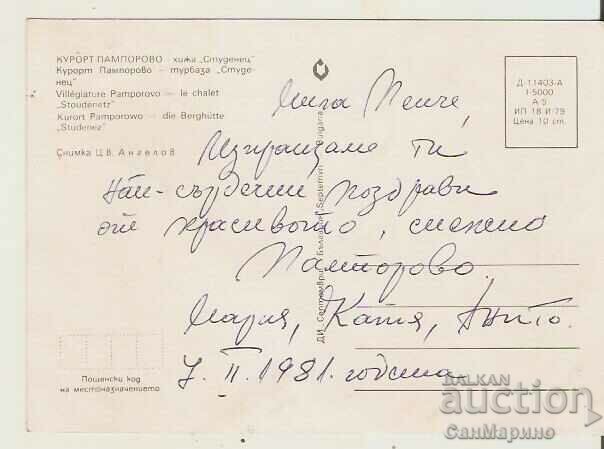 КУРОРТ ПАМПОРОВО - хижа „Студенец"
Курорт Пампорово — турбаза „Студе-
нец"
Villégiature Pamporovo — le chalet
"Stoudenetz"
Kurort Pamporowo — die Berghütte
"Studenez"
Снимка Ц В. Ангелов
Д-11403-А
1-5000
А 5
ИП 18 И-79
Цена 10 ст.
Мила Пенче,
Изпращаме ти
най-сърдечни поздрави
от красивото, снежно
Пампорово
Мария, Катя,
7. II. 1981. година
ДИ „Септември" Български Septemvri Bulgaria
Пощенски код
на местоназначението
BALKAN
auction
СанМарино